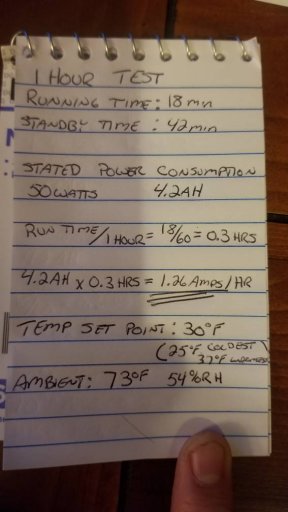 1 HOUR TEST
RUNNING TIME: 18 min
STANDBY TIME : 42 min
STATED POWER CONSUMPTION
50 WATTS 4.2AH
RUN TIME/1 HOUR = 18/60 = 0.3 HRS
4.2AH x 0.3 HRS = 1.26 AMPS/HR
TEMP SET POINT: 30°F
(25°F COLDEST
37°F WARMEST)
AMBIENT: 73°F 54%RH